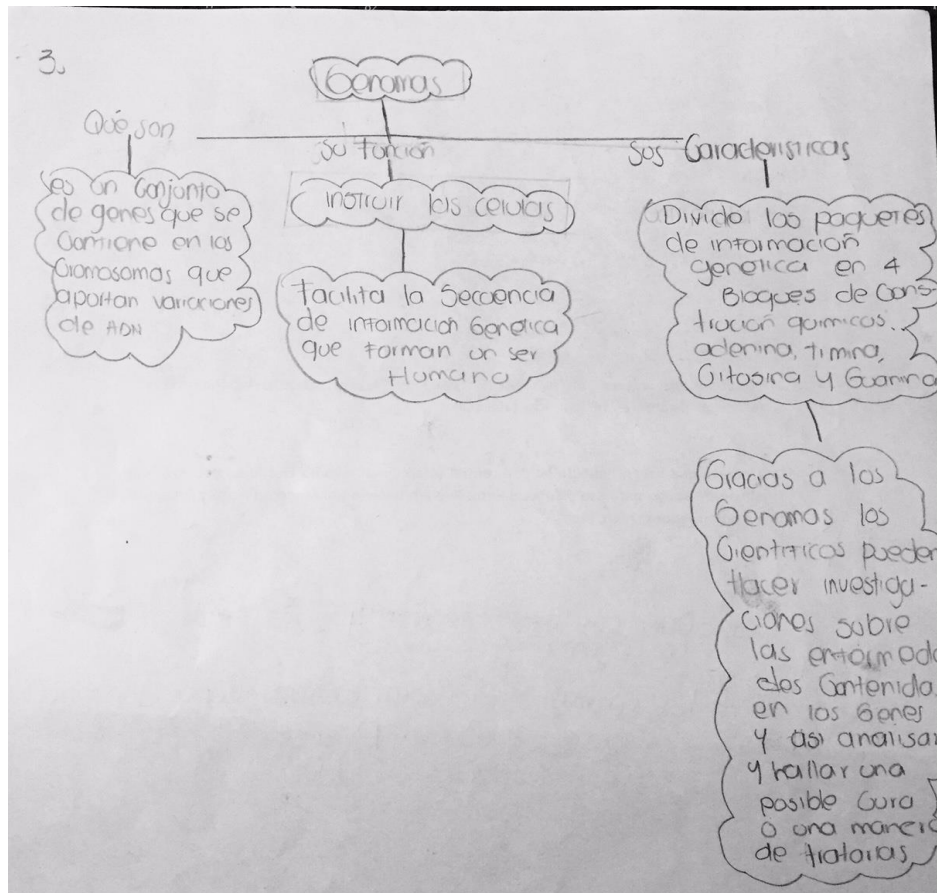 3.
Genomas
Qué son
su función
sus Caracteristicas
es un Conjunto
de genes que se
Contiene en los
Cromosomas que
aportan variaciones
de ADN
instruir las celulas
Facilita la Secuencia
de información Genetica
que forman un ser
Humano
Divide los paquetes
de información
genetica en 4
Bloques de Cons
trucion quimicos.
adenina, timina,
Citosina y Guanina
Gracias a los
Genomas los
Cientificos pueden
Hacer investiga-
ciones sobre
las enfermeda
des Contenida
en los Genes
y asi analisar
y hallar una
posible Cura
o una manera
de tratarlas